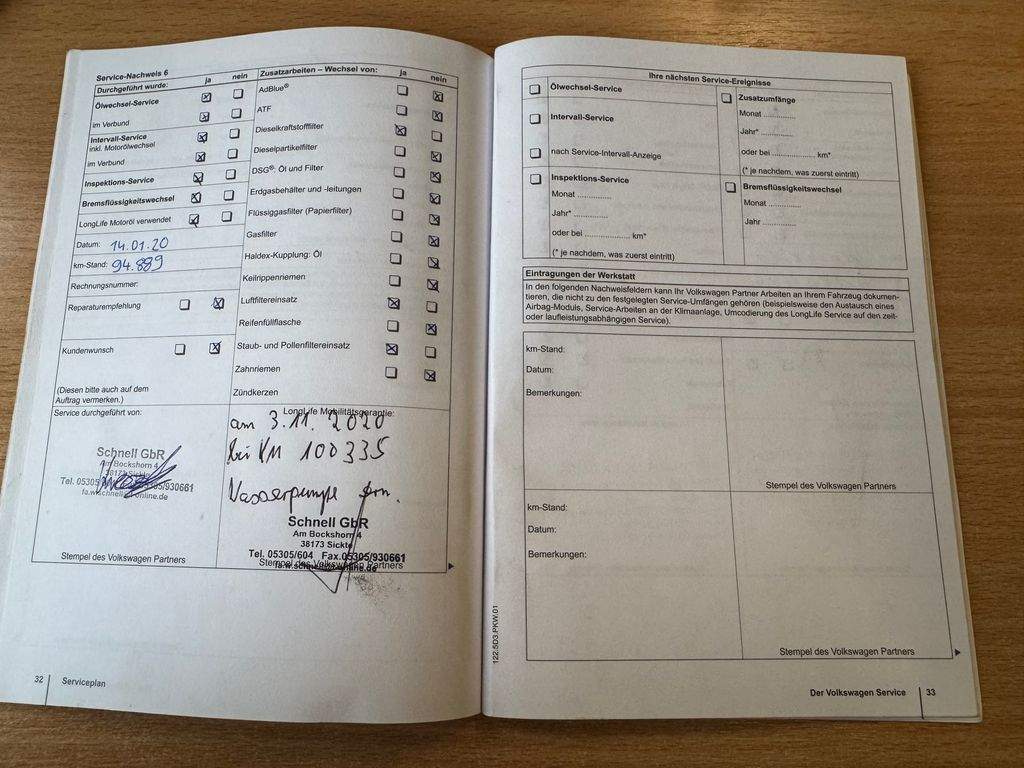 Service-Nachweis 6
Durchgeführt wurde: ja nein
Ölwechsel-Service ☒ ☐
im Verbund ☒ ☐
Intervall-Service ☒ ☐
inkl. Motorölwechsel
im Verbund ☒ ☐
Inspektions-Service ☒ ☐
Bremsflüssigkeitswechsel ☒ ☐
LongLife Motoröl verwendet ☒ ☐
Datum: 14.01.20
km-Stand: 94.889
Rechnungsnummer:
Reparaturempfehlung ☐ ☒
Kundenwunsch ☐ ☒
(Diesen bitte auch auf dem
Auftrag vermerken.)
Zusatzarbeiten – Wechsel von: ja nein
AdBlue® ☐ ☒
ATF ☐ ☒
Dieselkraftstofffilter ☒ ☐
Dieselpartikelfilter ☐ ☒
DSG®: Öl und Filter ☐ ☒
Erdgasbehälter und -leitungen ☐ ☒
Flüssiggasfilter (Papierfilter) ☐ ☒
Gasfilter ☐ ☒
Haldex-Kupplung: Öl ☐ ☒
Keilrippenriemen ☐ ☒
Luftfiltereinsatz ☒ ☐
Reifenfüllflasche ☐ ☒
Staub- und Pollenfiltereinsatz ☒ ☐
Zahnriemen ☐ ☒
Zündkerzen
Service durchgeführt von:
Schnell GbR
Am Bockshorn 4
38173 Sickte
fa.w.schnell@t-online.de
Stempel des Volkswagen Partners
LongLife Mobilitätsgarantie:
am 3.11. 2020
bei KM 100335
Wasserpumpe ern.
Schnell GbR
Am Bockshorn 4
38173 Sickte
Tel. 05305/604 Fax.05305/930661
fa.w.schnell@t-online.de
Stempel des Volkswagen Partners
32 Serviceplan
Ihre nächsten Service-Ereignisse
☐ Ölwechsel-Service
☐ Intervall-Service
☐ nach Service-Intervall-Anzeige
☐ Zusatzumfänge
Monat ..............
Jahr* ..............
oder bei ................... km*
(* je nachdem, was zuerst eintritt)
☐ Inspektions-Service
Monat ..............
Jahr* ..............
oder bei ................... km*
(* je nachdem, was zuerst eintritt)
☐ Bremsflüssigkeitswechsel
Monat ..............
Jahr ..............
Eintragungen der Werkstatt
In den folgenden Nachweisfeldern kann Ihr Volkswagen Partner Arbeiten an Ihrem Fahrzeug dokumen-
tieren, die nicht zu den festgelegten Service-Umfängen gehören (beispielsweise den Austausch eines
Airbag-Moduls, Service-Arbeiten an der Klimaanlage, Umcodierung des LongLife Service auf den zeit-
oder laufleistungsabhängigen Service).
km-Stand:
Datum:
Bemerkungen:
Stempel des Volkswagen Partners
km-Stand:
Datum:
Bemerkungen:
Stempel des Volkswagen Partners
122.5D3.PKW.01
Der Volkswagen Service 33